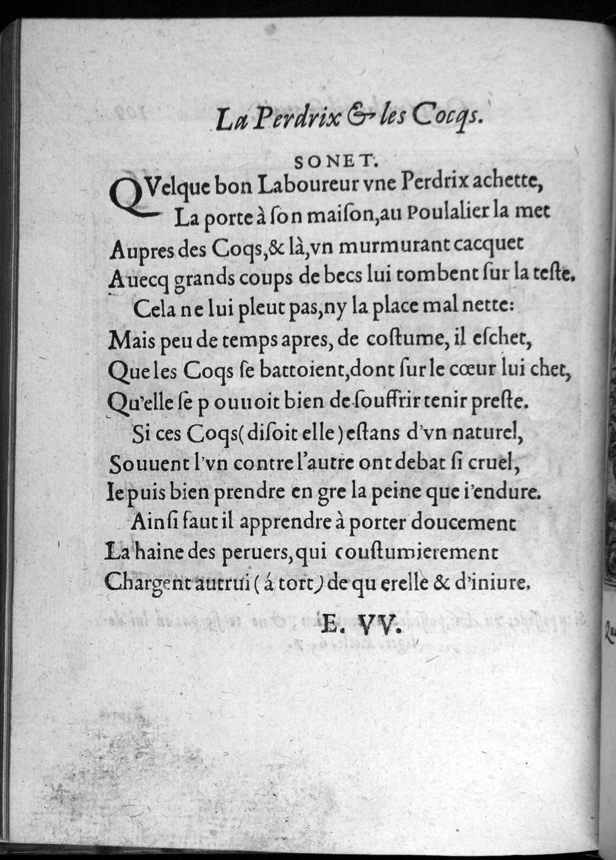 La Perdrix & les Cocqs.
SONET.
QVelque bon Laboureur vne Perdrix achette,
La porte à ſon maiſon,au Poulalier la met
Aupres des Coqs,& là,vn murmurant cacquet
Auecq grands coups de becs lui tombent ſur la teſte.
Cela ne lui pleut pas,ny la place mal nette:
Mais peu de temps apres, de coſtume, il eſchet,
Que les Coqs ſe battoient,dont ſur le cœur lui chet,
Qu'elle ſe p ouuoit bien de ſouffrir tenir preſte.
Si ces Coqs(diſoit elle) eſtans d'vn naturel,
Souuent l'vn contre l'autre ont debat ſi cruel,
Ie puis bien prendre en gre la peine que i'endure.
Ainſi faut il apprendre à porter doucement
La haine des peruers, qui couſtumierement
Chargent autrui ( á tort) de qu erelle & d'iniure.
E. VV.